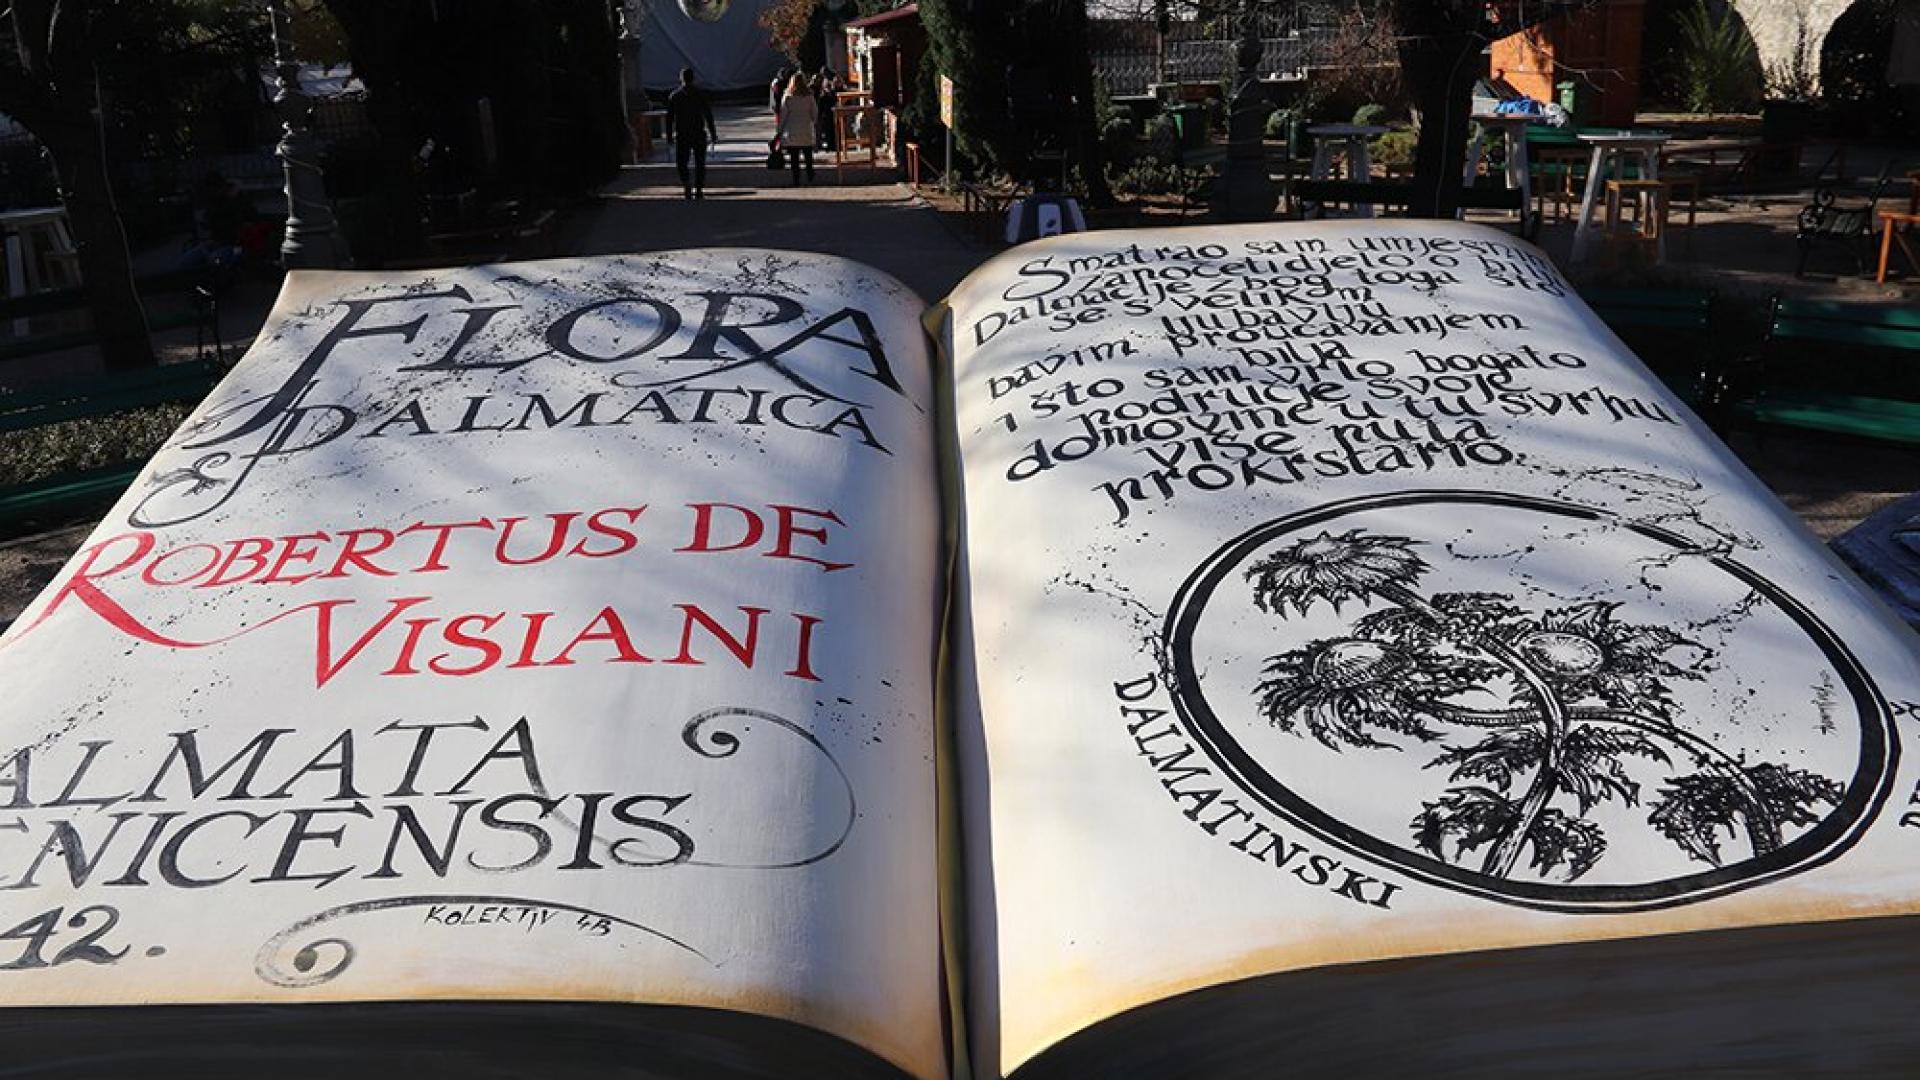 FLORA
DALMATICA
ROBERTUS DE
VISIANI
ALMATA
ENICENSIS
42.
KOLEKTIV 4B
Smatrao sam umjesnim
započeti djelo o bilju
Dalmacije zbog toga što
se s velikom
ljubavlju
bavim proučavanjem
bilja
i što sam vrlo bogato
područje svoje
domovine u tu svrhu
više puta
prokrstario.
DALMATINSKI